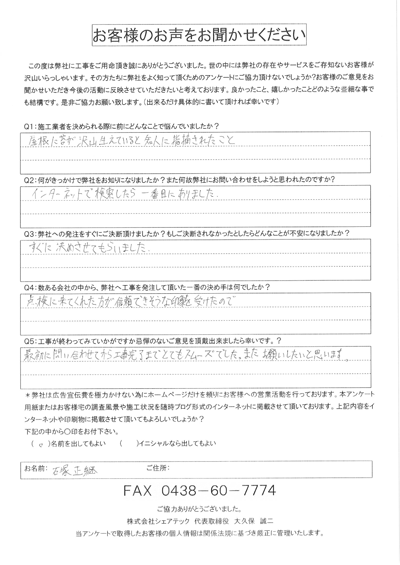 お客様のお声をお聞かせください
この度は弊社に工事をご用命頂き誠にありがとうございました。世の中には弊社の存在やサービスをご存知ないお客様が
沢山いらっしゃいます。その方たちに弊社をよく知って頂くためのアンケートにご協力頂けないでしょうか?お客様のご意見をお
聞かせいただき今後の活動に反映させていただきたいと考えております。良かったこと、嬉しかったことどのような些細な事で
も結構です。是非ご協力お願い致します。(出来るだけ具体的に書いて頂ければ幸いです)
Q1:施工業者を決められる際に前にどんなことで悩んでいましたか?
屋根に苔が沢山生えていると知人に指摘されたこと
Q2:何がきっかけで弊社をお知りになりましたか?また何故弊社にお問い合わせをしようと思われたのですか?
インターネットで検索したら一番目にありました。
Q3:弊社への発注をすぐにご決断頂けましたか?もしご決断されなかったとしたらどんなことが不安になりましたか?
すぐに決めさせてもらいました。
Q4:数ある会社の中から、弊社へ工事を発注して頂いた一番の決め手は何でしたか?
点検に来てくれた方が信頼できそうな印象を受けたので
Q5:工事が終わってみていかがですか忌憚のないご意見を頂戴出来ましたら幸いです。?
最初に問い合わせてから工事完了までとてもスムーズでした。またお願いしたいと思います。
*弊社は広告宣伝費を極力かけない為にホームページだけを頼りにお客様への営業活動を行っております。本アンケート
用紙またはお客様宅の調査風景や施工状況を随時ブログ形式のインターネットに掲載させて頂いております。上記内容をイ
ンターネットや印刷物に掲載させて頂いてもよろしいでしょうか?
下記の中から〇印をお付下さい。
(○)名前を出してもよい ( )イニシャルなら出してもよい
お名前: ご住所:
FAX 0438-60-7774
ご協力ありがとうございました。
株式会社シェアテック 代表取締役 大久保 誠二
当アンケートで取得したお客様の個人情報は関係法規に基づき厳正に管理いたします。